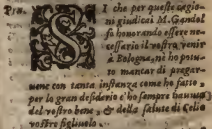 Pro. SI che per queste cagio
ni giudicai M. Gandol
fo honorando essere ne
cessario il vostro venir
à Bologna, nè ho potu
to mancar di pregar-
uene con tanta instanza come ho fatto
per lo gran desiderio c'ho sempre hauuto
del vostro bene, & della salute di Celio
vostro figliuolo